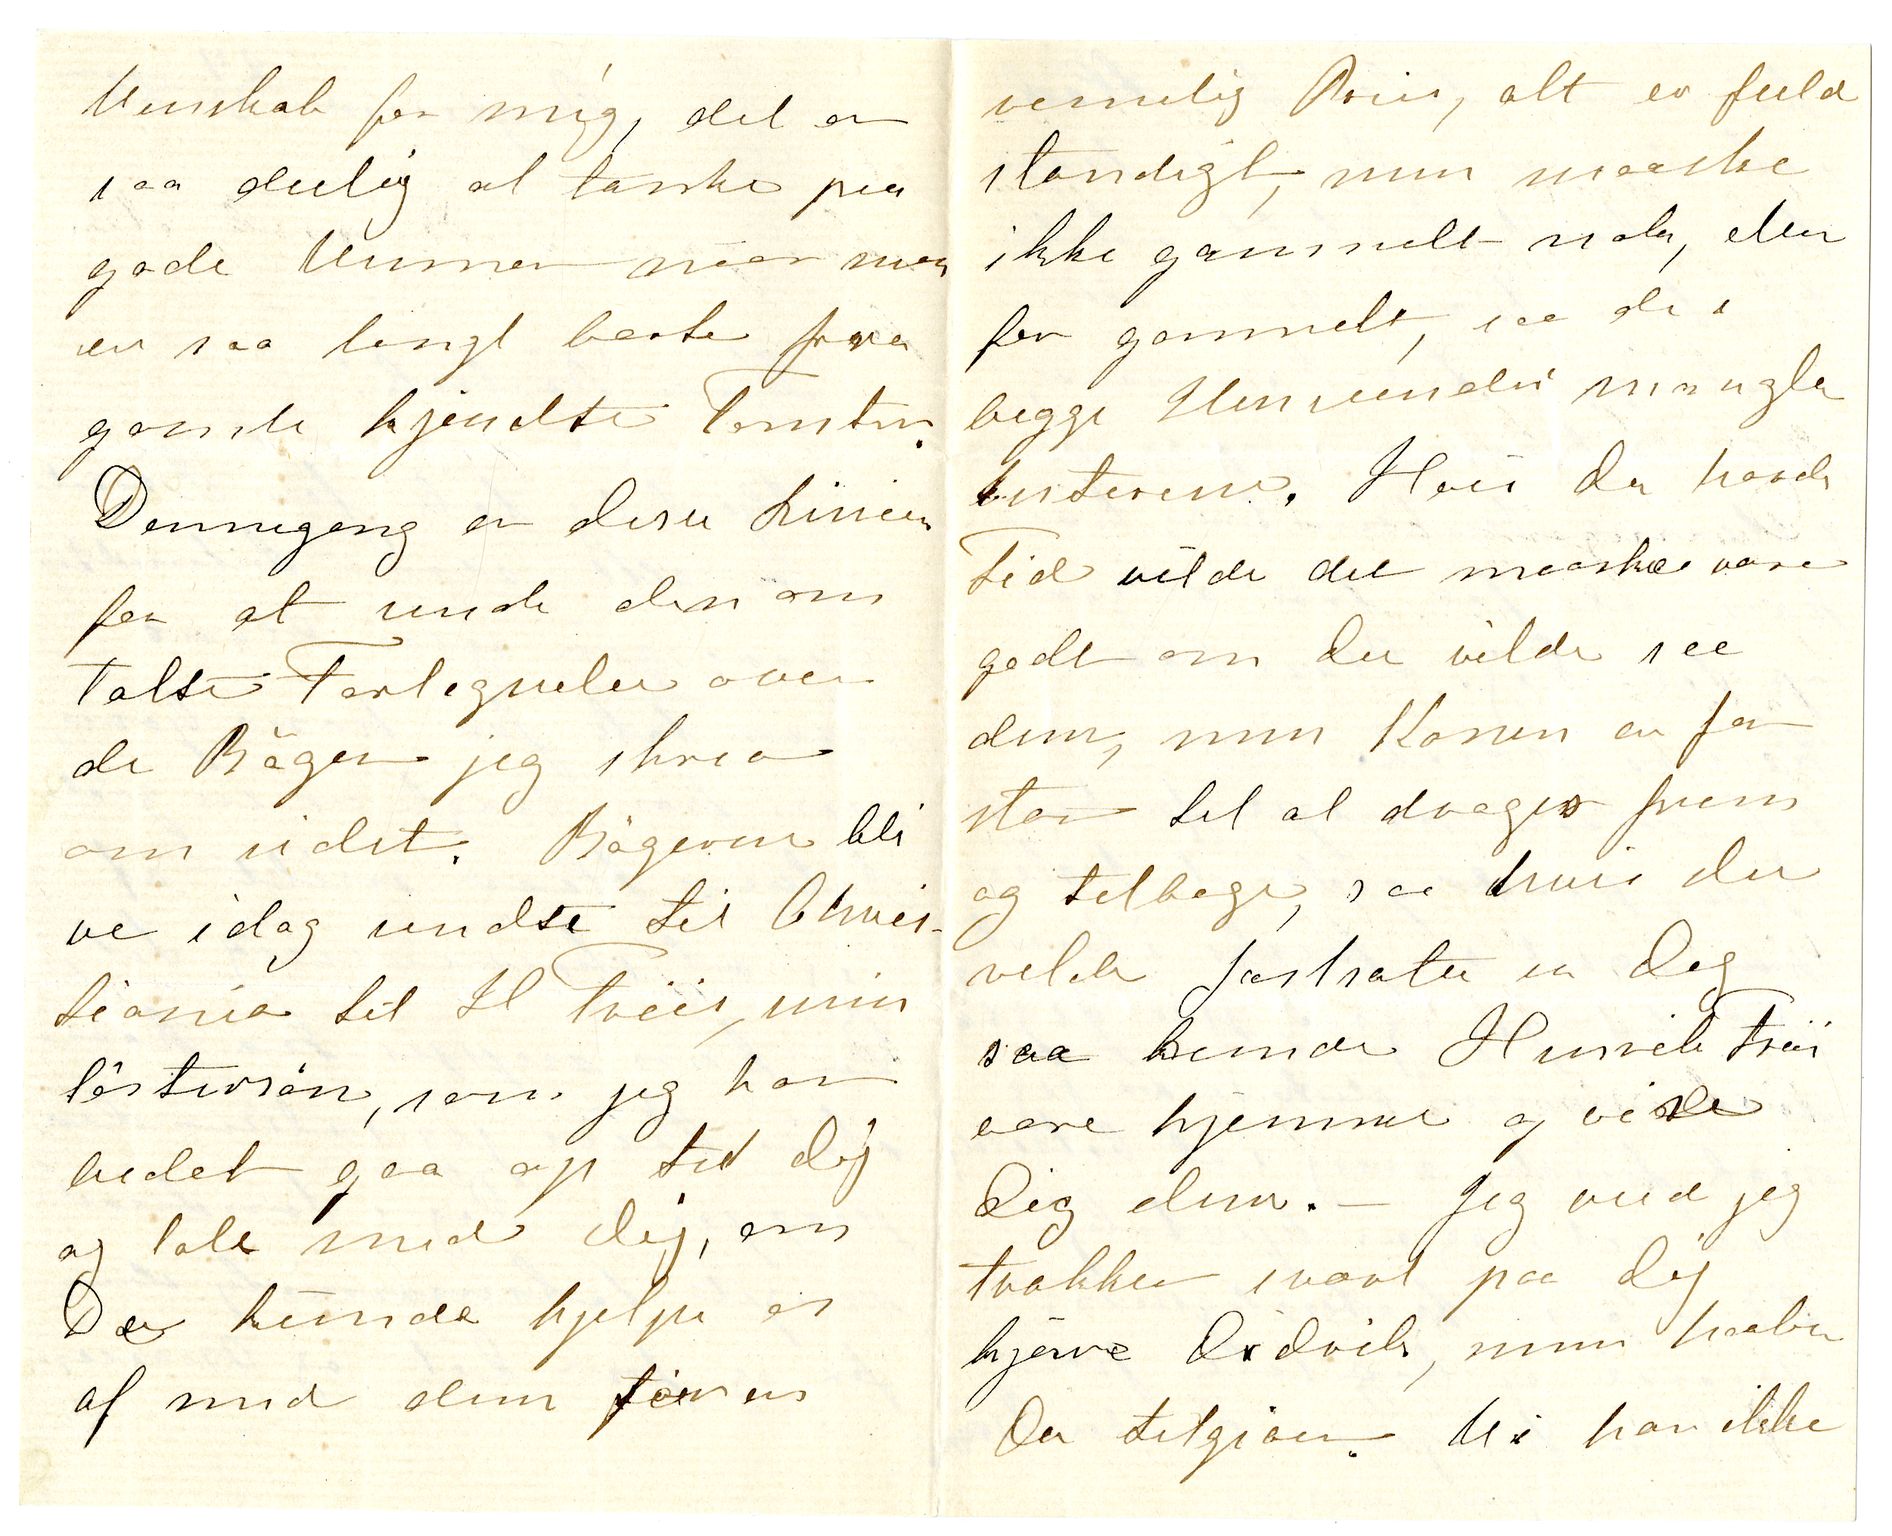 Venskab for mig, det er
saa deilig at tænke paa
gode Venner naar man
er saa langt borte fra
gamle kjendte Tomter.
Dennegang er disse Linier
for at sende den om
talte Fortegnelse over
de Bøger jeg skrev
om sidst. Bøgerne bli
ve idag sendte til Chris-
tiania til H Friis, min
Søstersøn, som jeg har
bedet gaa op til Dig
og tale med Dig, om
Du kunde hjelpe os
af med dem for en
rimelig Pris, alt er fuld
stændigt, men maaske
ikke gammelt nok, eller
for gammelt, saa de i
begge Henseender mangler
Interesse. Hvis Du havde
Tid vilde det maaske være
godt om Du vilde see
dem, men Kassen er for
stor til at drages frem
og tilbage, saa hvis Du
vilde fastsætte en Dag
saa kunde Henrik Friis
være hjemme og vise
Dig dem. – Jeg veed jeg
trækker svært paa Dig
kjære Didrik, men haaber
Du tilgiver. Vi har ikke